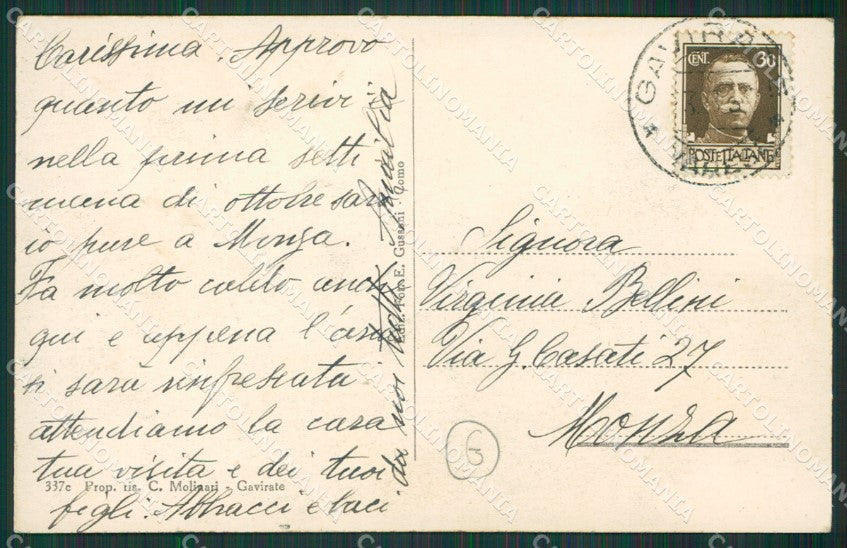 Carissima. Approvo
quanto mi scrivi
nella prima setti
mana di ottobre sarò
io pure a Monza.
Fa molto caldo anche
qui e appena l'aria
si sarà rinfrescata
attendiamo la cara
tua visita e dei tuoi
figli. Abbracci e baci
da noi tutti Amalia
337c Prop. ris. C. Molinari - Gavirate
Fot. E. Gussoni - Como
GAVIRATE
VARESE
CENT. 30
POSTE ITALIANE
Signora
Virginia Bellini
Via G. Casati 27
Monza
G
CARTOLINOMANIA